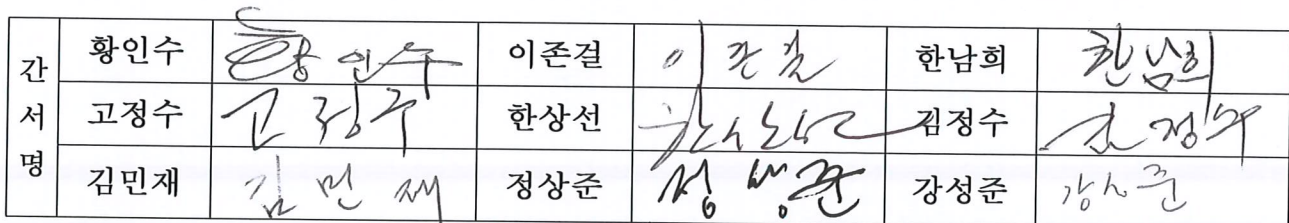 간서명
황인수 황인수 이존걸 이존걸 한남희 한남희
고정수 고정수 한상선 한상선 김정수 김정수
김민재 김민재 정상준 정상준 강성준 강성준